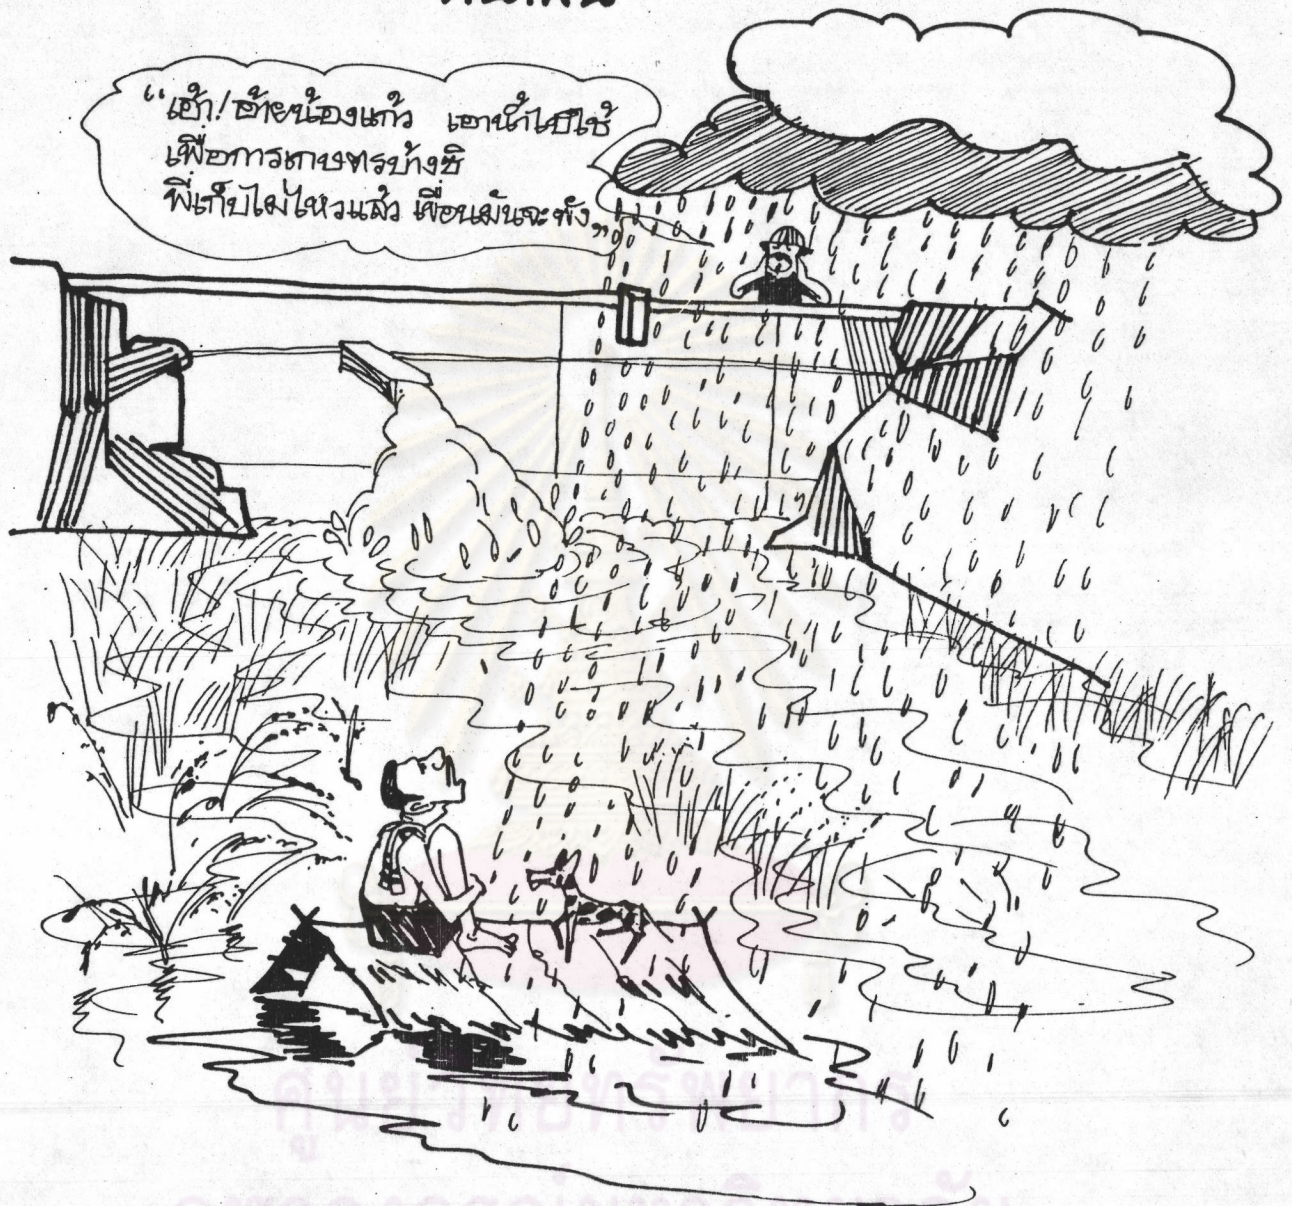 “เฮ้า! อ้ายน้องแก้ว เอาน้ำไปใช้
เพื่อการเกษตรบ้างซิ
พี่เก็บไม่ไหวแล้ว เขื่อนมันจะพัง”
ศูนย์วิทยทรัพยากร